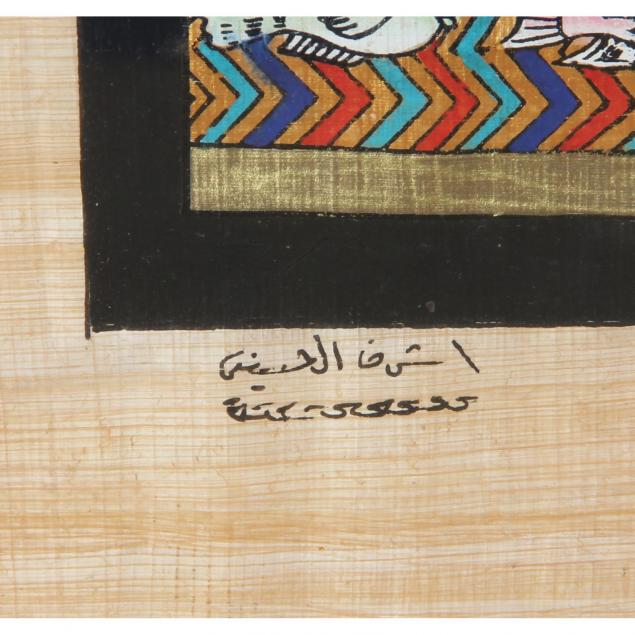 اشرف الحسينى